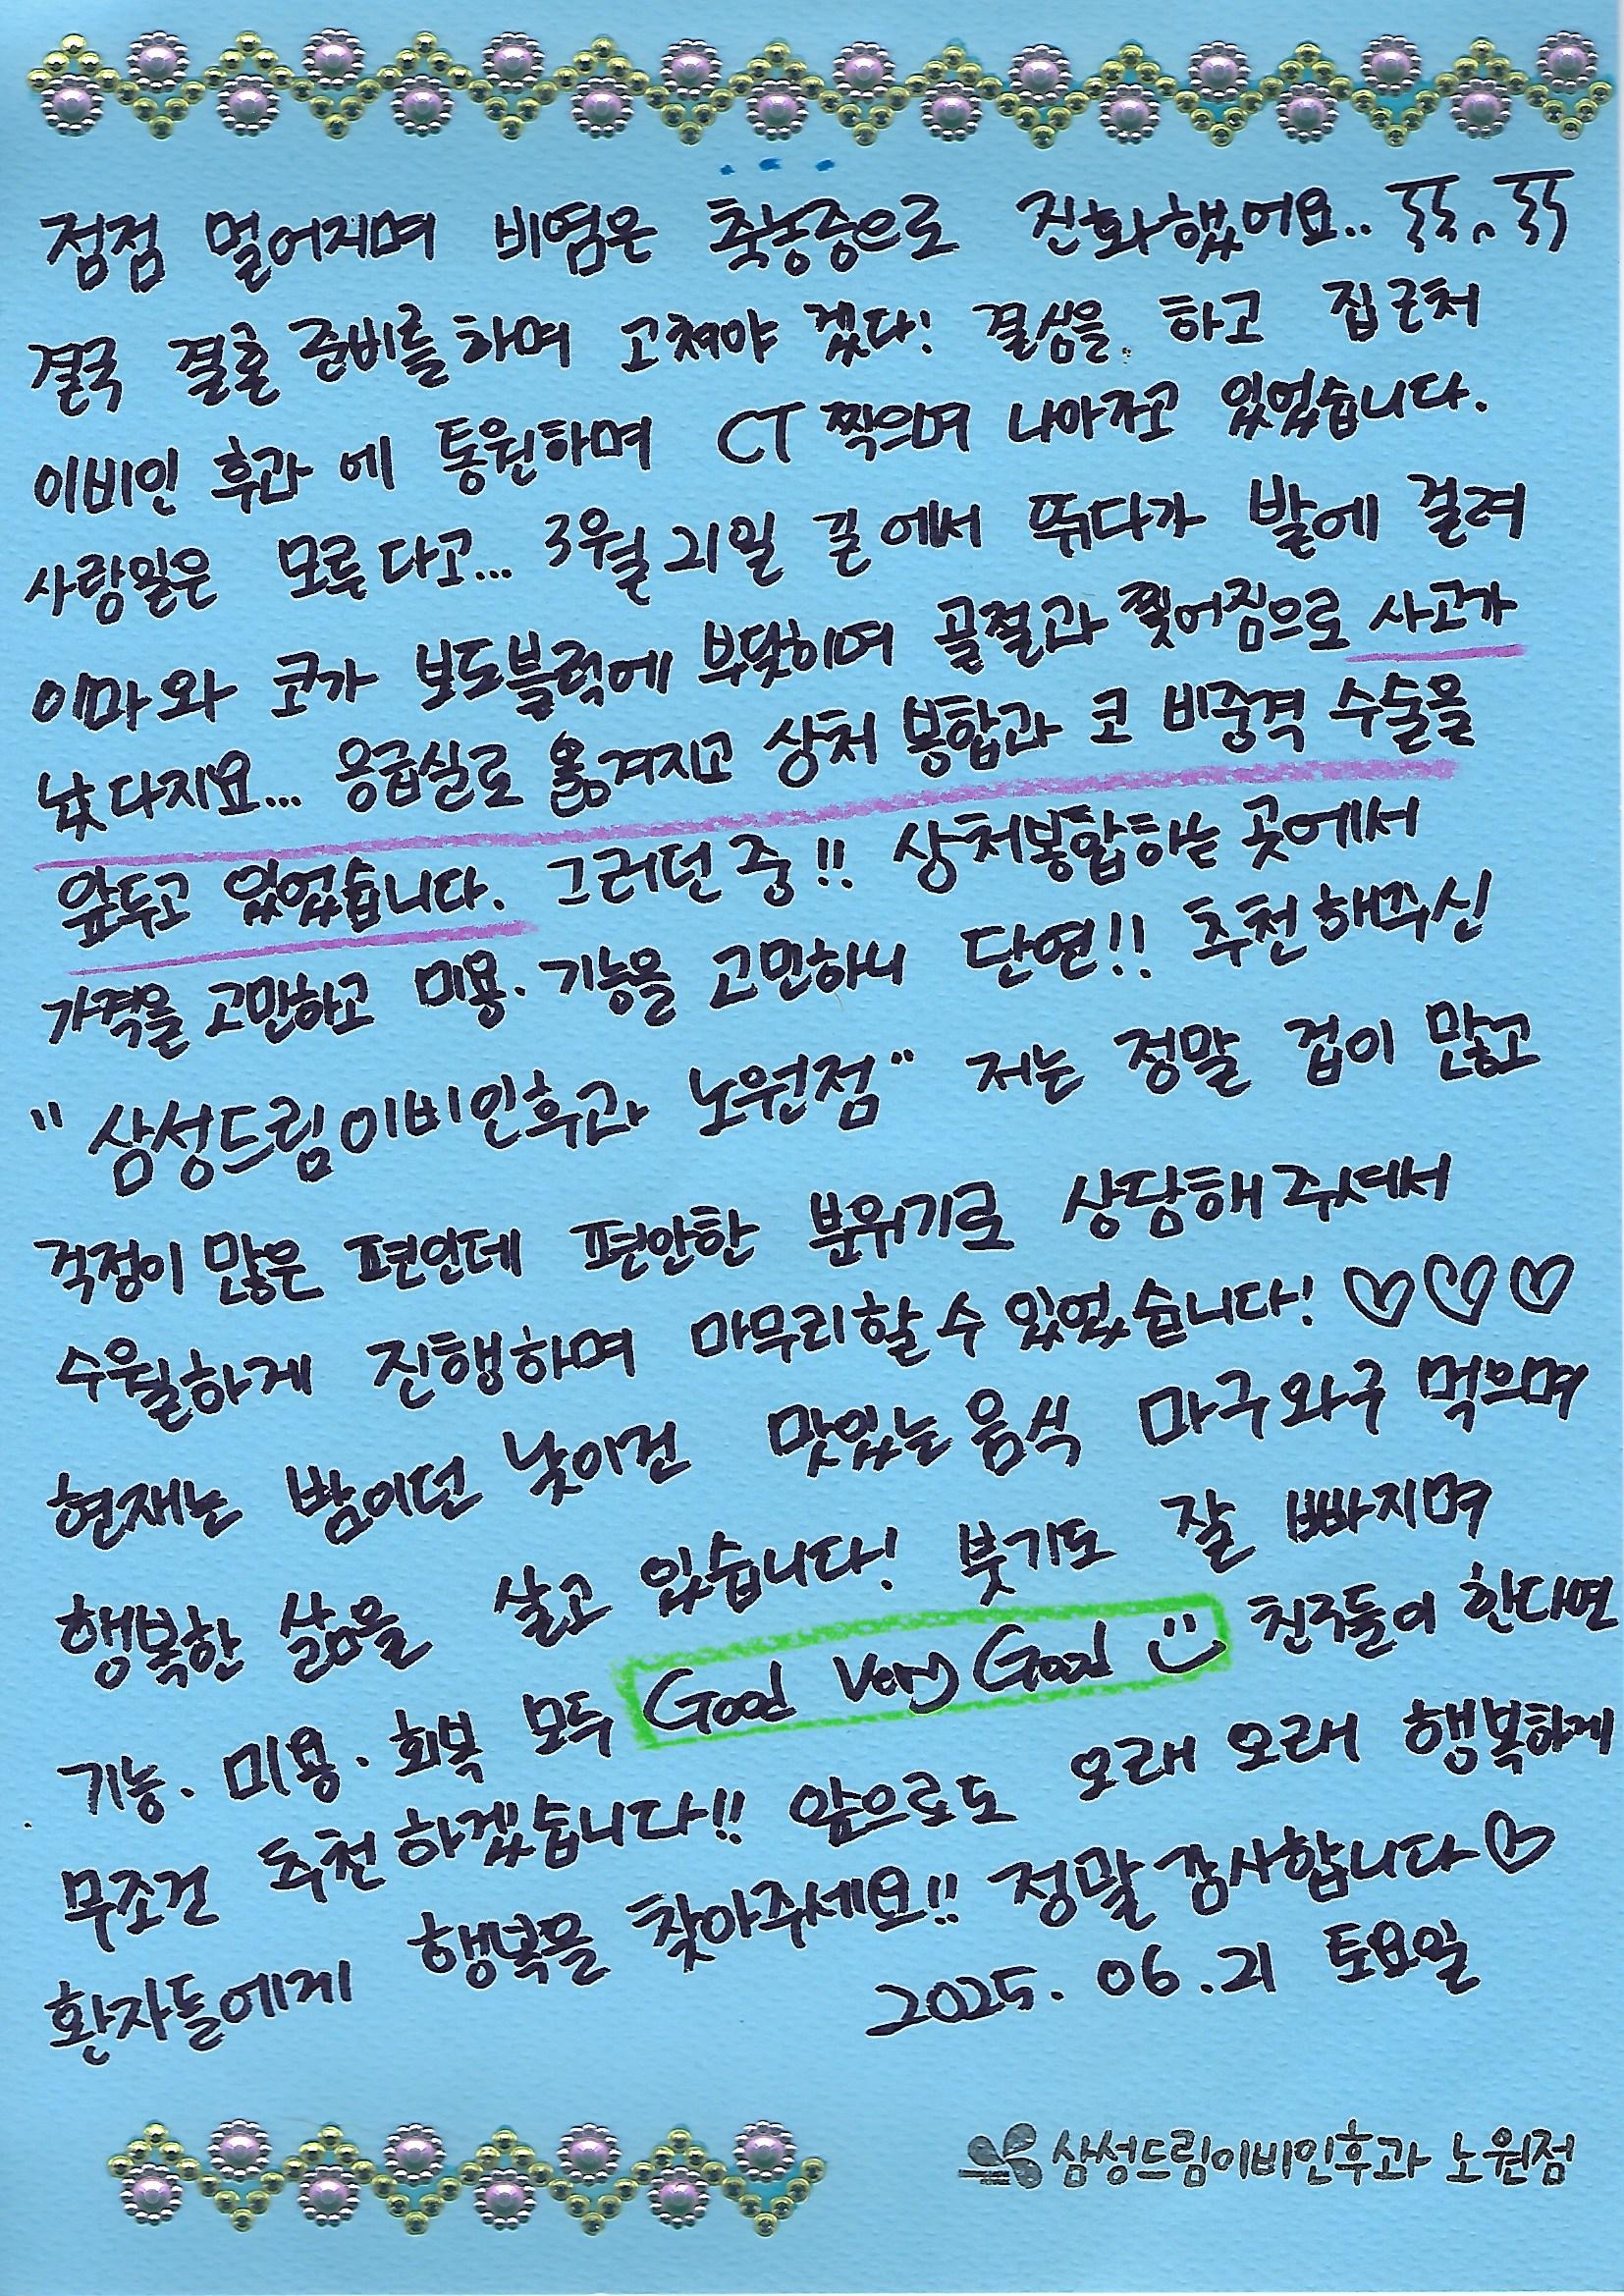 점점 멀어지며 비염은 축농증으로 진화했어요.. ㅠㅠ.ㅠ
결국 결혼 준비를 하며 고쳐야 겠다! 결심을 하고 집 근처
이비인 후과 에 통원하며 CT 찍으며 나아지고 있었습니다.
사람일은 모른다고... 3월 21일 길에서 뛰다가 발에 걸려
이마와 코가 보도블럭에 부딪히며 골절과 찢어짐으로 사고가
났다지요... 응급실로 옮겨지고 상처 봉합과 코 비중격 수술을
앞두고 있었습니다. 그러던 중!! 상처봉합하는 곳에서
가격을 고민하고 미용·기능을 고민하니 단연!! 추천해주신
"삼성드림이비인후과 노원점" 저는 정말 겁이 많고
걱정이 많은 편인데 편안한 분위기로 상담해 주셔서
수월하게 진행하며 마무리할 수 있었습니다! ♡♡♡
현재는 밤이던 낮이건 맛있는 음식 마구와구 먹으며
행복한 삶을 살고 있습니다! 붓기도 잘 빠지며
기능·미용·회복 모두 Good Very Good 친구들이 한다면
무조건 추천하겠습니다!! 앞으로도 오래 오래 행복하게
환자들에게 행복을 찾아주세요!! 정말 감사합니다♡
2025. 06. 21 토요일
삼성드림이비인후과 노원점